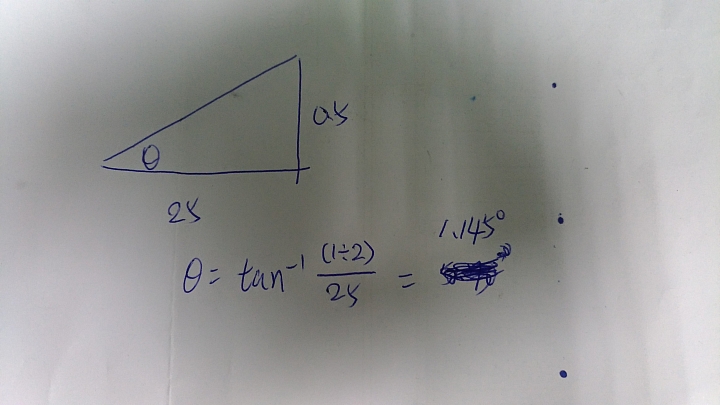 0.5
θ
25
1.145°
θ = tan⁻¹ (1÷2)/25 =